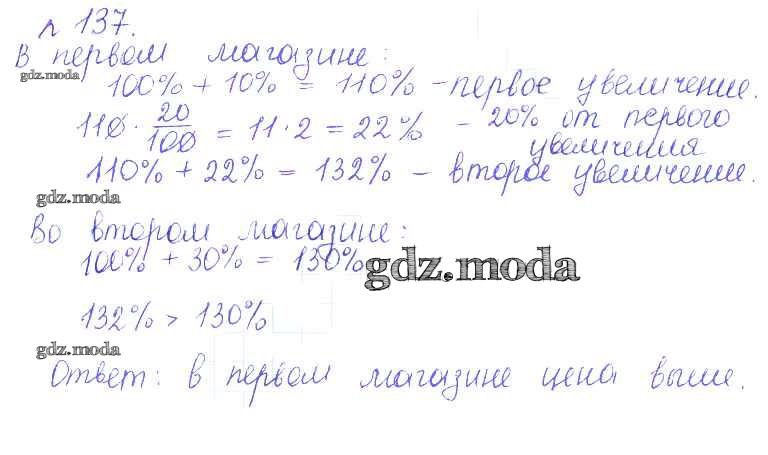 № 137.
В первом магазине:
gdz.moda
100% + 10% = 110% – первое увеличение.
110 · 20/100 = 11 · 2 = 22% – 20% от первого
увеличения
110% + 22% = 132% – второе увеличение.
gdz.moda
Во втором магазине:
100% + 30% = 130%
gdz.moda
132% > 130%
gdz.moda
Ответ: в первом магазине цена выше.